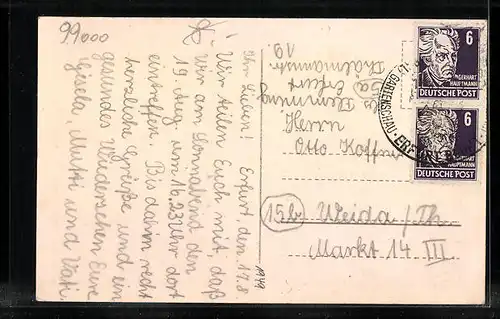 99000
Ihr Lieben! Erfurt, den 17.8.
Wir teilen Euch mit, daß
wir am Sonnabend den
19. Aug. um 16.23 Uhr dort
eintreffen. Bis dahin recht
herzliche Grüße und ein
gesundes Wiedersehen Eure
Gisela, Mutti und Vati.
1949
Flemming
Erfurt
Thälmannstr.
19.
Herrn
Otto Koffner
15b Weida/Th.
Markt 14 III
6
GERHART
HAUPTMANN
DEUTSCHE POST
6
GERHART
HAUPTMANN
DEUTSCHE POST
GARTENSCHAU